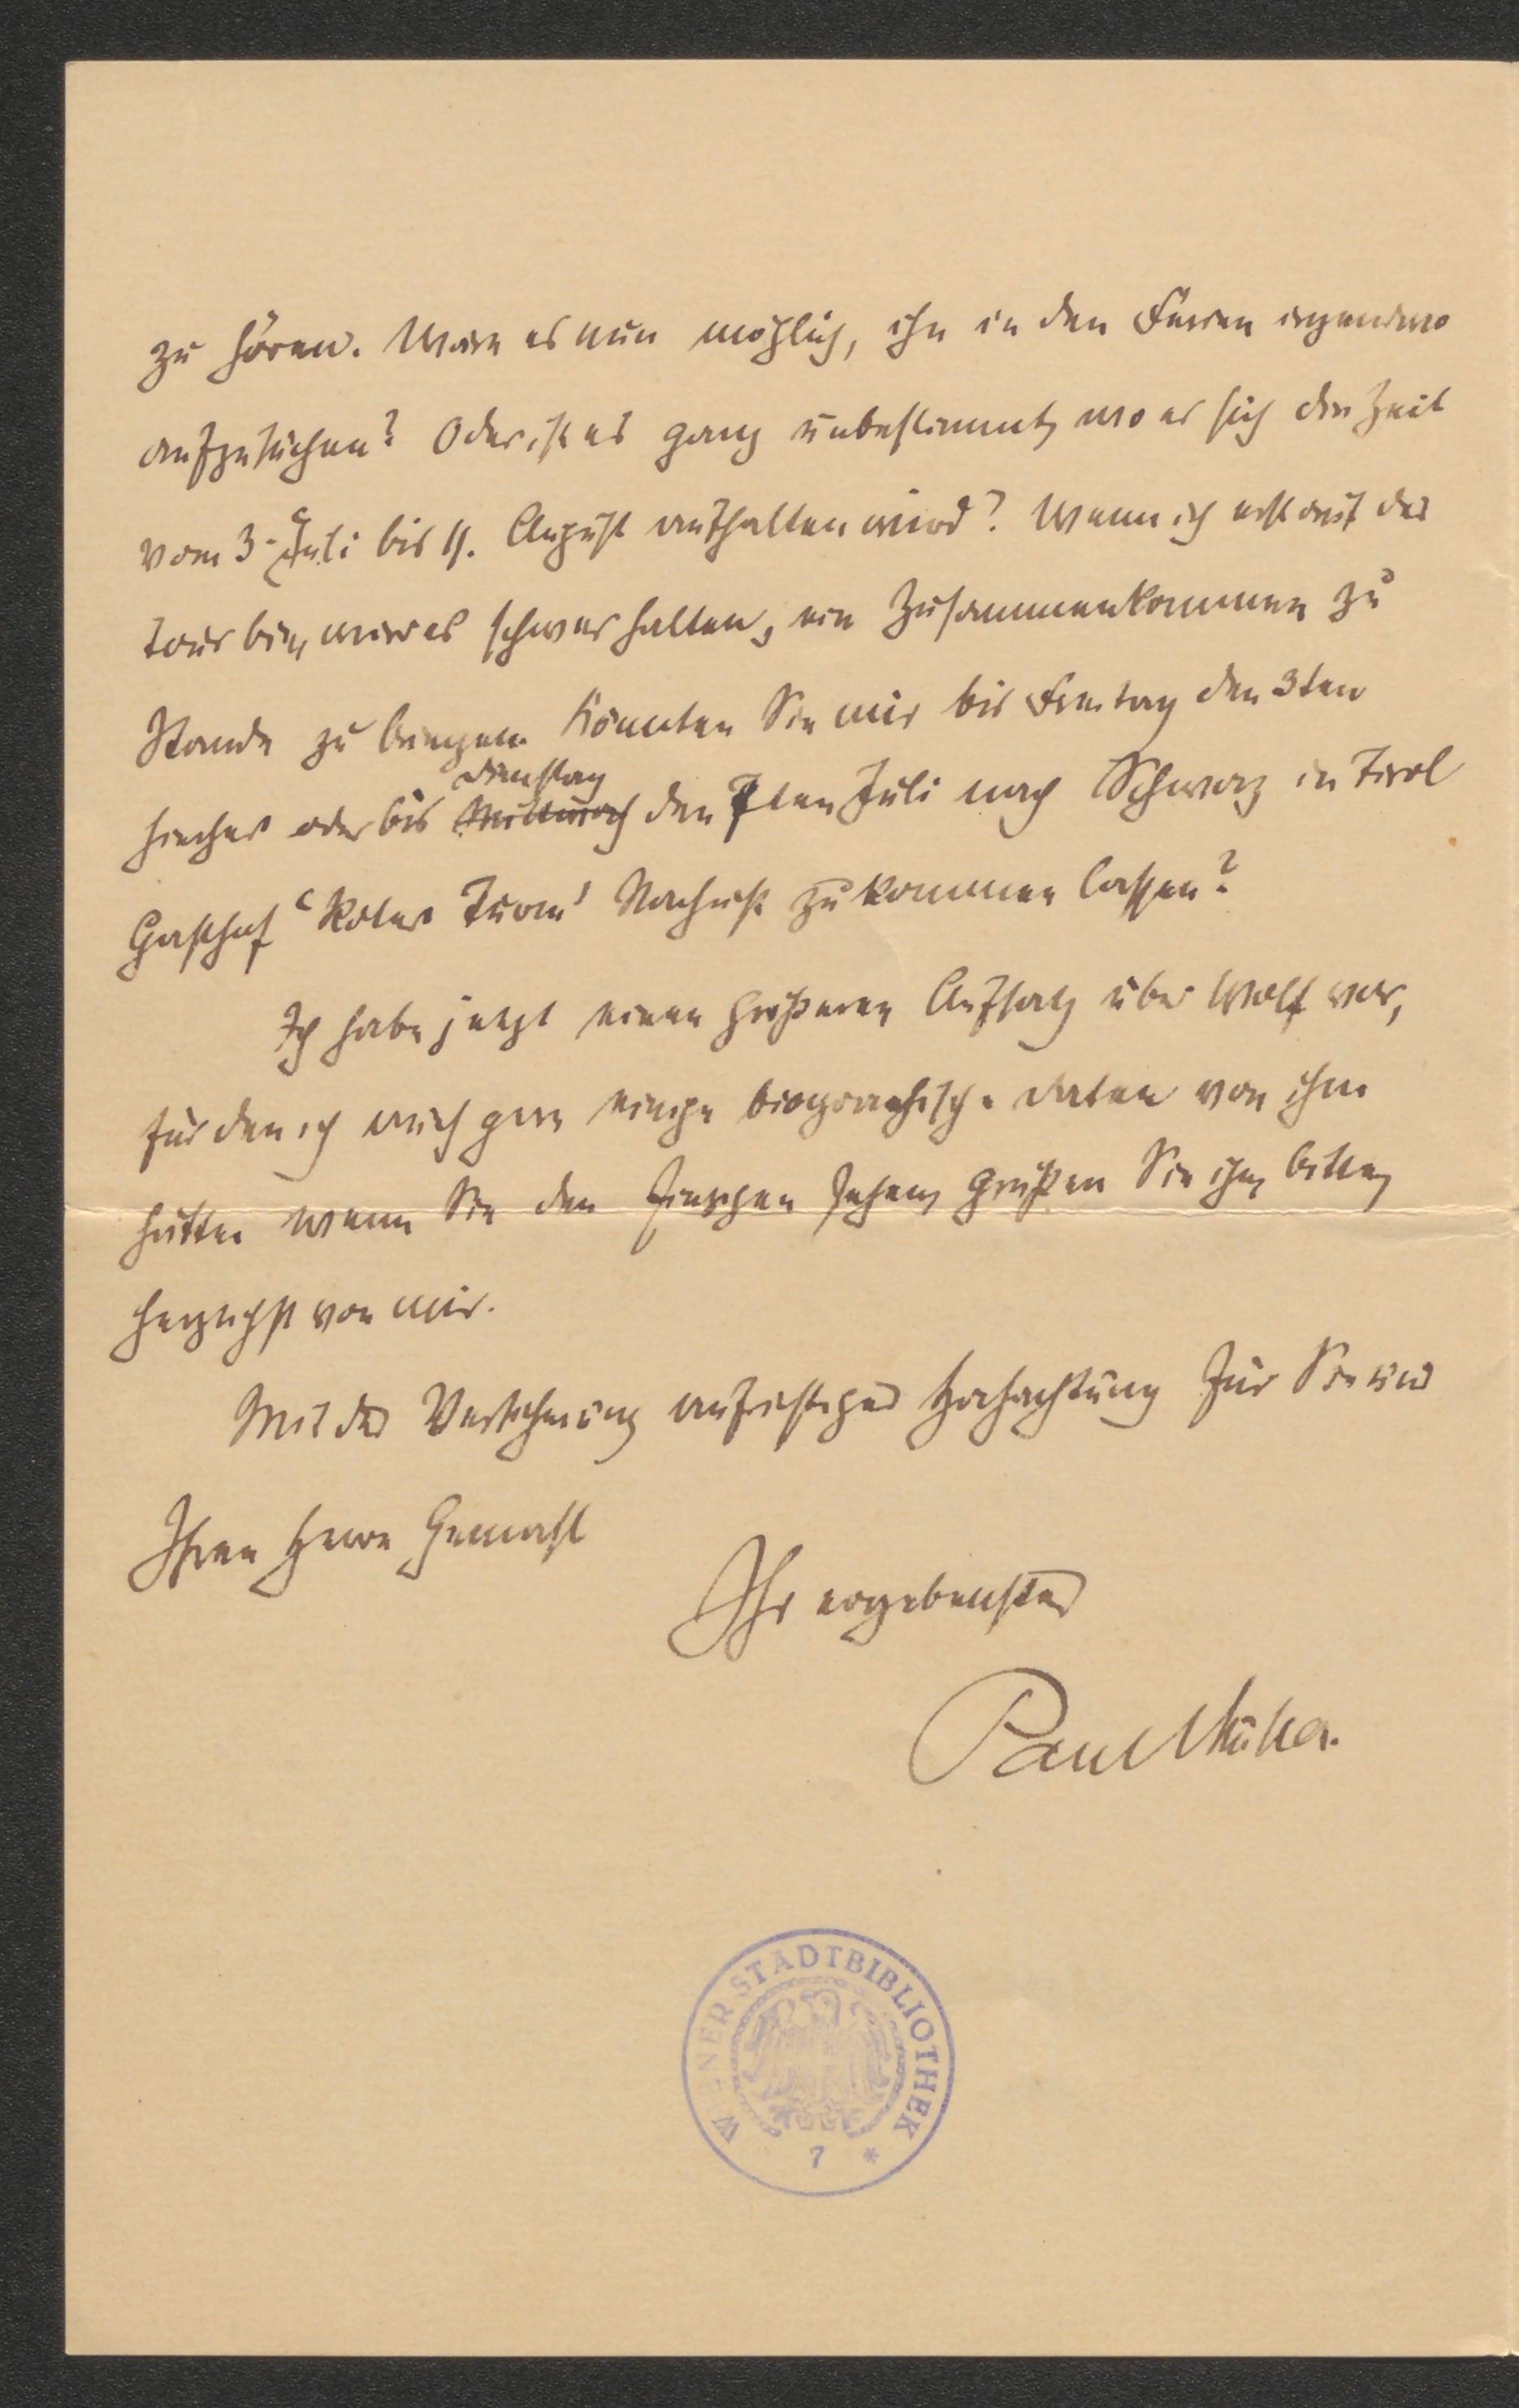 zu hören. Wäre es nun möglich, ihn in den Ferien irgendwo
aufzusuchen? Oder ist es ganz unbestimmt, wo er sich die Zeit
vom 3. Juli bis 11. August aufhalten wird? Wenn ich erst auf der
Tour bin, wird es schwer halten, ein Zusammenkommen zu
Stande zu bringen. Könnten Sie mir bis Freitag den 3ten
hierher oder bis Mittwoch Dienstag den 7ten Juli nach Schwaz in Tirol
Gasthof 'Roter Turm' Nachricht zukommen lassen?
Ich habe jetzt einen größeren Aufsatz über Wolf vor,
für den ich auch gern einige biographische Daten von ihm
hätte. Wenn Sie den sehen, grüßen Sie ihn, bitte,
herzlichst von mir.
Mit der Versicherung aufrichtiger Hochachtung für Sie und
Ihren Herrn Gemahl
Ihr ergebenster
Paul Müller.
WIENER STADTBIBLIOTHEK
7 *